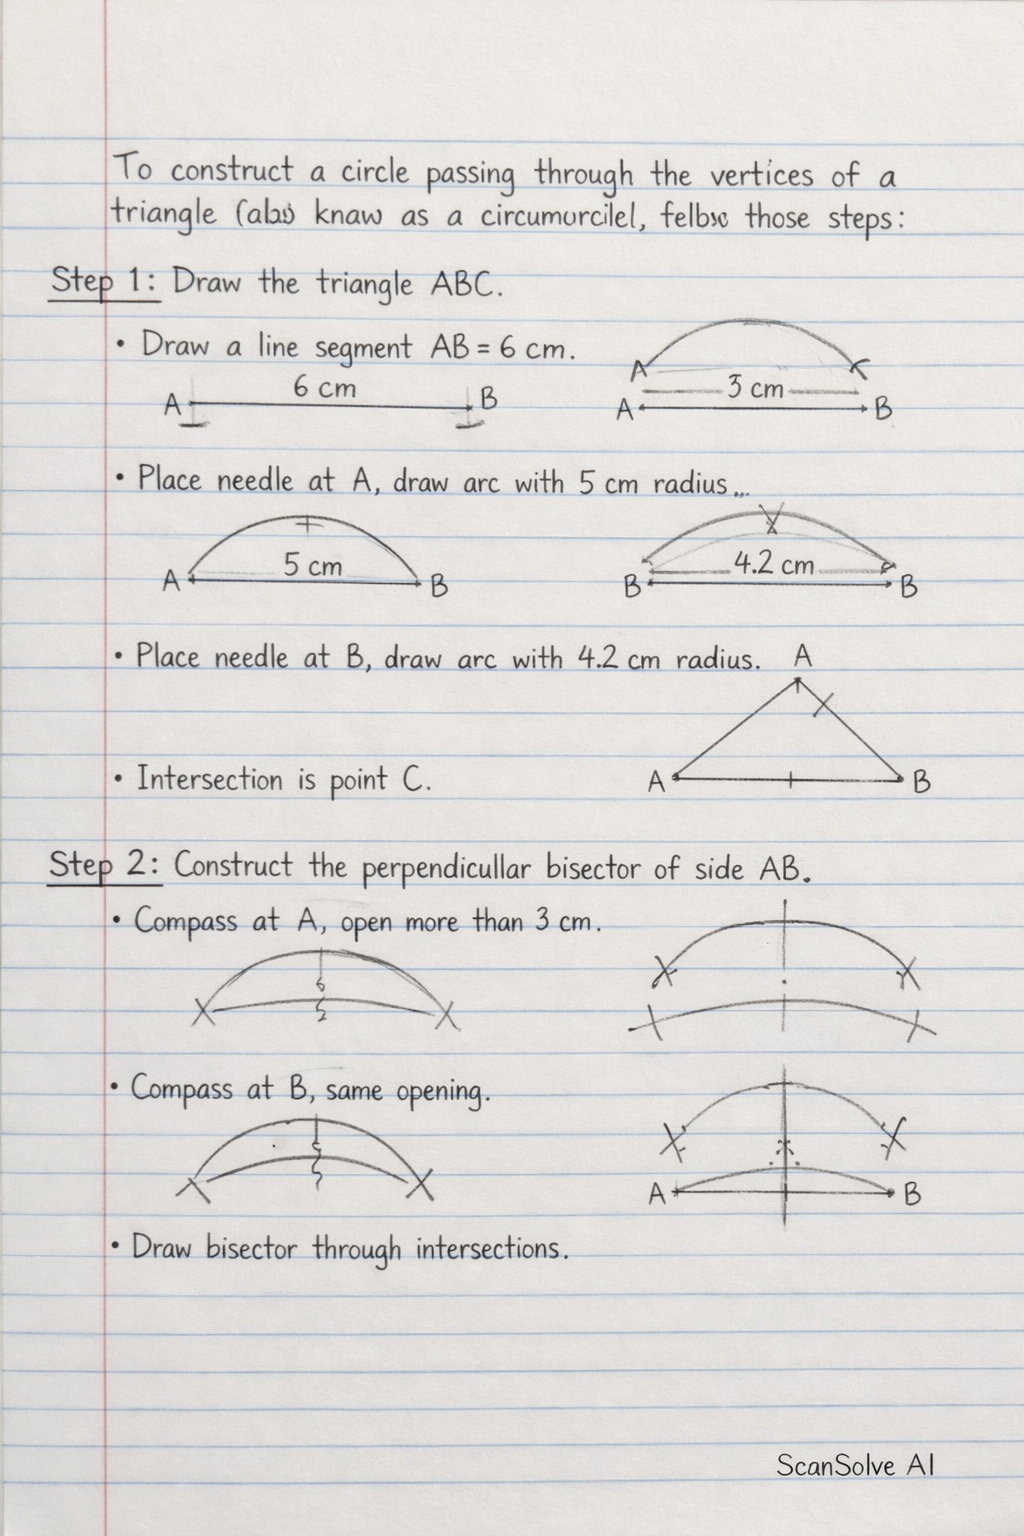 To construct a circle passing through the vertices of a
triangle (alas knaw as a circumurcilel, felbsc those steps:
Step 1: Draw the triangle ABC.
• Draw a line segment AB = 6 cm.
A 6 cm B
A
3 cm
A B
• Place needle at A, draw arc with 5 cm radius...
5 cm
A B
4.2 cm
B B
• Place needle at B, draw arc with 4.2 cm radius.
A
• Intersection is point C.
A B
Step 2: Construct the perpendicullar bisector of side AB.
• Compass at A, open more than 3 cm.
• Compass at B, same opening.
A B
• Draw bisector through intersections.
ScanSolve AI